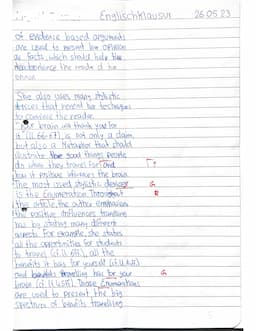 Englischklausur 26.05.23
of evidence based arguments
are used to present her opinion
as facts, which should help the
She also uses many stylistic
devices that reveal her techniques
to convince the reader.
"Your brain will thank you for
it" (ll. 66-67), is not only a claim,
but also a Metaphor that should
illustrate the good things people
do when they travel for and
how it positive influences the brain.
The most used stylistic
is the Enumeration. Throughout
the article, the author emphasizes
the positive influences travelling
has by stating many different
aspects. For example, she states
all the opportunities for students
to travel (cf. ll. 6ff), all the
benefits it has for yourself
and travelling has for your
brain (cf. ll. 45ff). Those Enumerations
are used to present the big
spectrum of benefits travelling